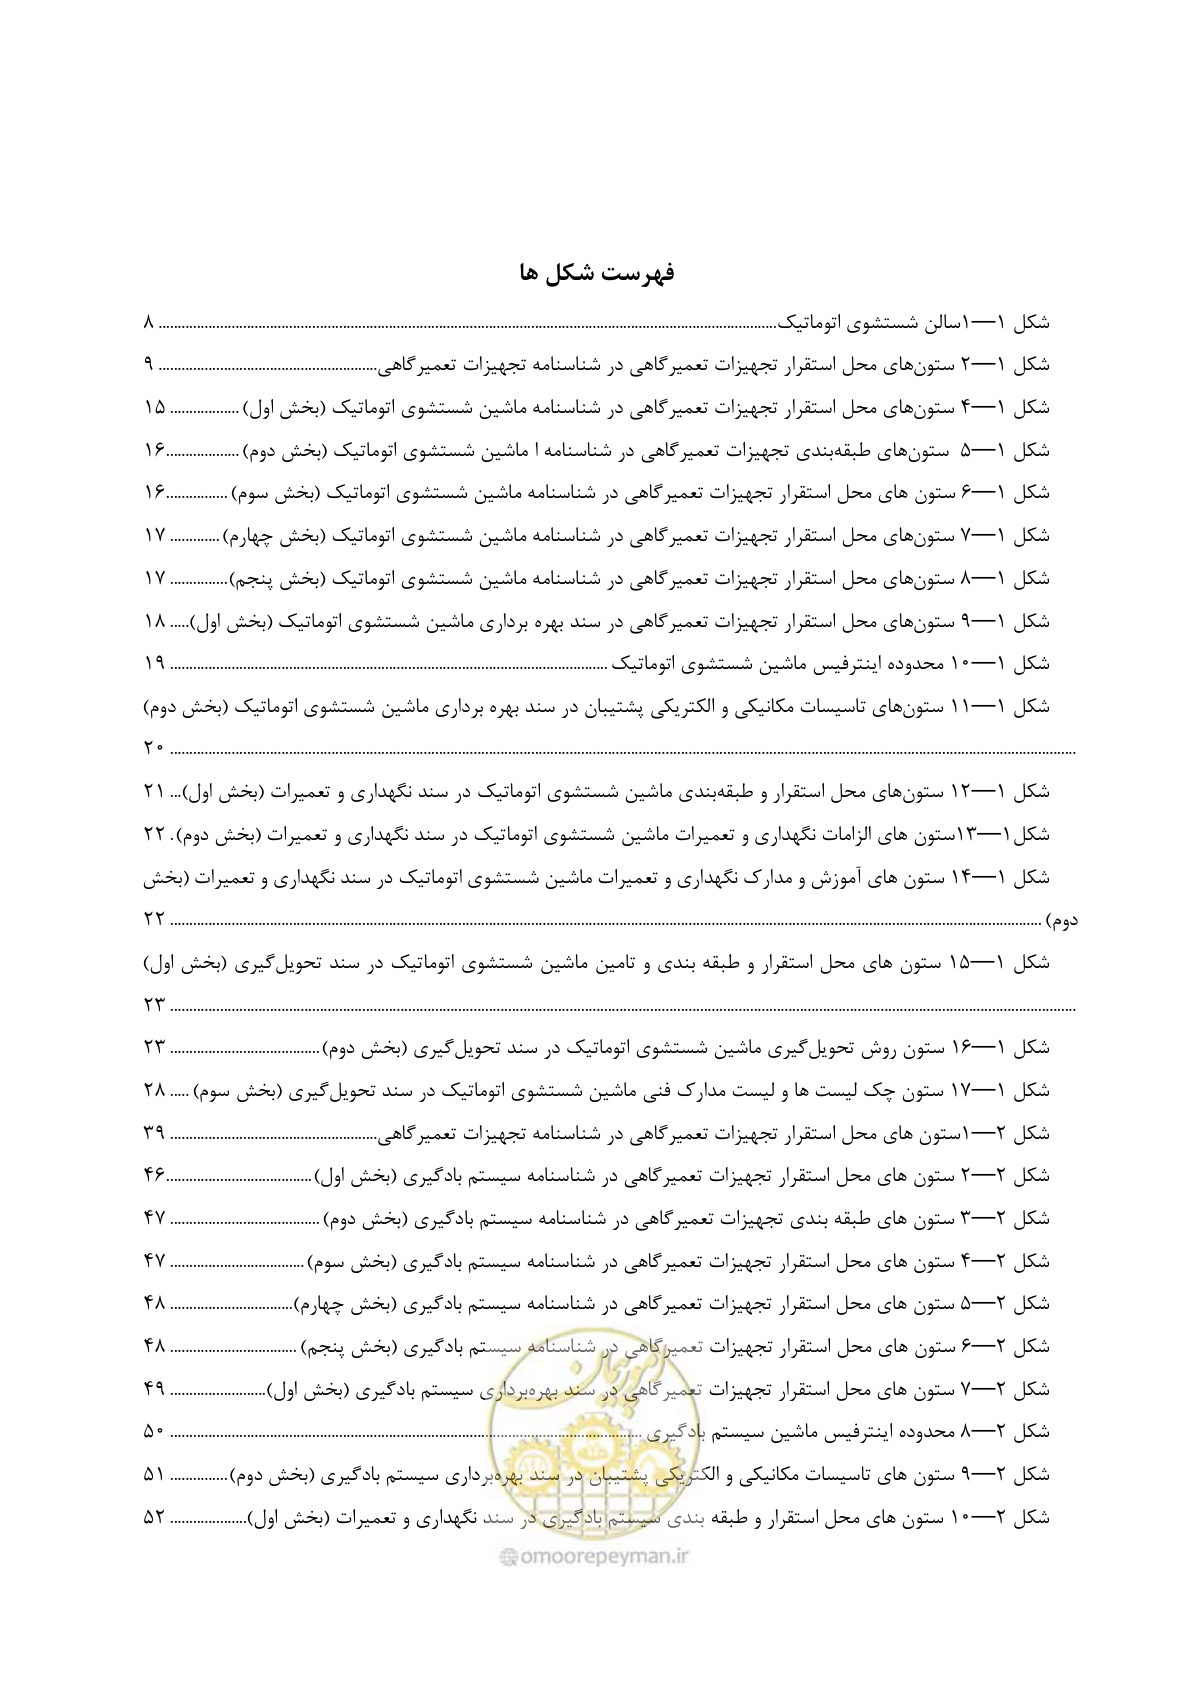 فهرست شکل ها
شکل ۱—۱سالن شستشوی اتوماتیک ........ ۸
شکل ۱—۲ ستون‌های محل استقرار تجهیزات تعمیرگاهی در شناسنامه تجهیزات تعمیرگاهی ........ ۹
شکل ۱—۴ ستون‌های محل استقرار تجهیزات تعمیرگاهی در شناسنامه ماشین شستشوی اتوماتیک (بخش اول) ........ ۱۵
شکل ۱—۵ ستون‌های طبقه‌بندی تجهیزات تعمیرگاهی در شناسنامه ا ماشین شستشوی اتوماتیک (بخش دوم) ........ ۱۶
شکل ۱—۶ ستون های محل استقرار تجهیزات تعمیرگاهی در شناسنامه ماشین شستشوی اتوماتیک (بخش سوم) ........ ۱۶
شکل ۱—۷ ستون‌های محل استقرار تجهیزات تعمیرگاهی در شناسنامه ماشین شستشوی اتوماتیک (بخش چهارم) ........ ۱۷
شکل ۱—۸ ستون‌های محل استقرار تجهیزات تعمیرگاهی در شناسنامه ماشین شستشوی اتوماتیک (بخش پنجم) ........ ۱۷
شکل ۱—۹ ستون‌های محل استقرار تجهیزات تعمیرگاهی در سند بهره برداری ماشین شستشوی اتوماتیک (بخش اول) ..... ۱۸
شکل ۱—۱۰ محدوده اینترفیس ماشین شستشوی اتوماتیک ........ ۱۹
شکل ۱—۱۱ ستون‌های تاسیسات مکانیکی و الکتریکی پشتیبان در سند بهره برداری ماشین شستشوی اتوماتیک (بخش دوم)
........ ۲۰
شکل ۱—۱۲ ستون‌های محل استقرار و طبقه‌بندی ماشین شستشوی اتوماتیک در سند نگهداری و تعمیرات (بخش اول) ... ۲۱
شکل۱—۱۳ستون های الزامات نگهداری و تعمیرات ماشین شستشوی اتوماتیک در سند نگهداری و تعمیرات (بخش دوم) . ۲۲
شکل ۱—۱۴ ستون های آموزش و مدارک نگهداری و تعمیرات ماشین شستشوی اتوماتیک در سند نگهداری و تعمیرات (بخش
دوم) ........ ۲۲
شکل ۱—۱۵ ستون های محل استقرار و طبقه بندی و تامین ماشین شستشوی اتوماتیک در سند تحویل‌گیری (بخش اول)
........ ۲۳
شکل ۱—۱۶ ستون روش تحویل‌گیری ماشین شستشوی اتوماتیک در سند تحویل‌گیری (بخش دوم) ........ ۲۳
شکل ۱—۱۷ ستون چک لیست ها و لیست مدارک فنی ماشین شستشوی اتوماتیک در سند تحویل‌گیری (بخش سوم) ..... ۲۸
شکل ۲—۱ستون های محل استقرار تجهیزات تعمیرگاهی در شناسنامه تجهیزات تعمیرگاهی ........ ۳۹
شکل ۲—۲ ستون های محل استقرار تجهیزات تعمیرگاهی در شناسنامه سیستم بادگیری (بخش اول) ........ ۴۶
شکل ۲—۳ ستون های طبقه بندی تجهیزات تعمیرگاهی در شناسنامه سیستم بادگیری (بخش دوم) ........ ۴۷
شکل ۲—۴ ستون های محل استقرار تجهیزات تعمیرگاهی در شناسنامه سیستم بادگیری (بخش سوم) ........ ۴۷
شکل ۲—۵ ستون های محل استقرار تجهیزات تعمیرگاهی در شناسنامه سیستم بادگیری (بخش چهارم) ........ ۴۸
شکل ۲—۶ ستون های محل استقرار تجهیزات تعمیرگاهی در شناسنامه سیستم بادگیری (بخش پنجم) ........ ۴۸
شکل ۲—۷ ستون های محل استقرار تجهیزات تعمیرگاهی در سند بهره‌برداری سیستم بادگیری (بخش اول) ........ ۴۹
شکل ۲—۸ محدوده اینترفیس ماشین سیستم بادگیری ........ ۵۰
شکل ۲—۹ ستون های تاسیسات مکانیکی و الکتریکی پشتیبان در سند بهره‌برداری سیستم بادگیری (بخش دوم) ........ ۵۱
شکل ۲—۱۰ ستون های محل استقرار و طبقه بندی سیستم بادگیری در سند نگهداری و تعمیرات (بخش اول) ........ ۵۲
امور پیمان
@omoorepeyman.ir